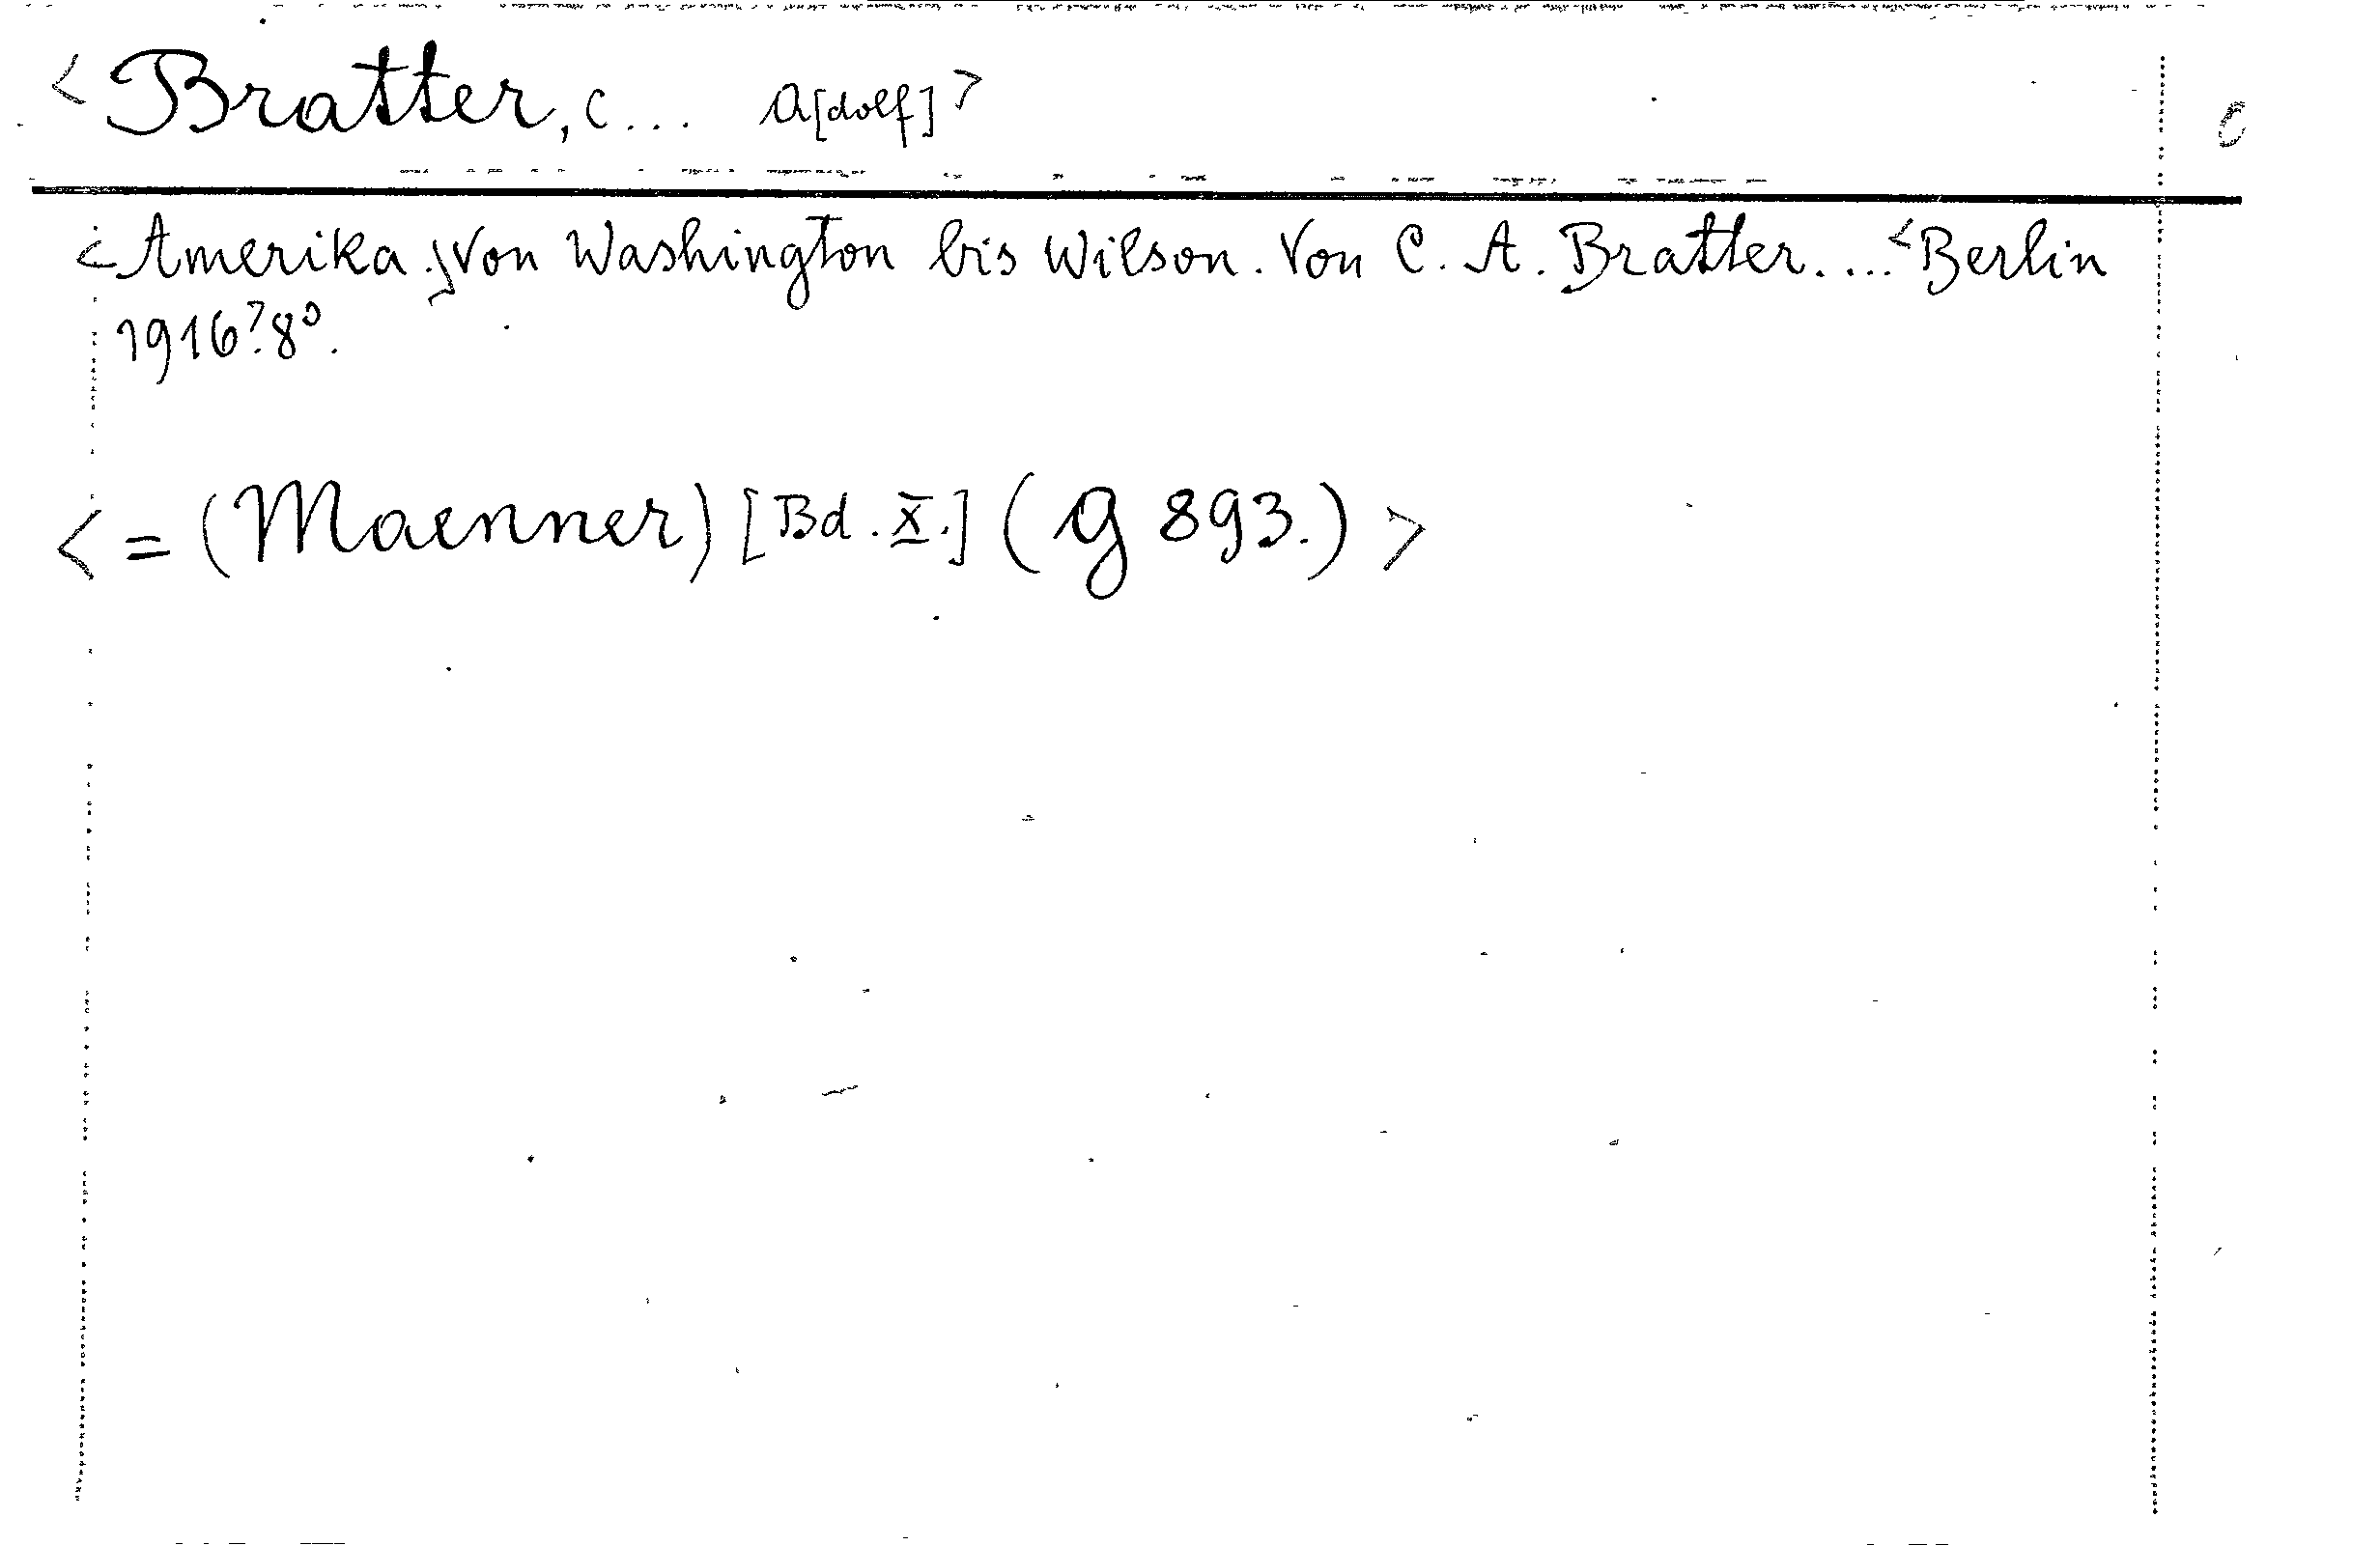 <Bratter, C... A[dolf]>
<Amerika.> Von Washington bis Wilson. Von C. A. Bratter.... <Berlin
1916> 8°.
<= (Maenner) [Bd. X.] (g 893.)>